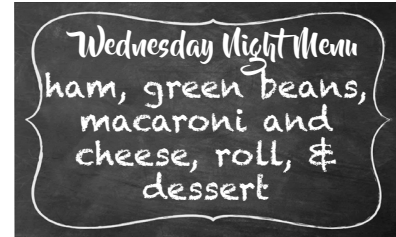 Wednesday Night Menu
ham, green beans,
macaroni and
cheese, roll, &
dessert